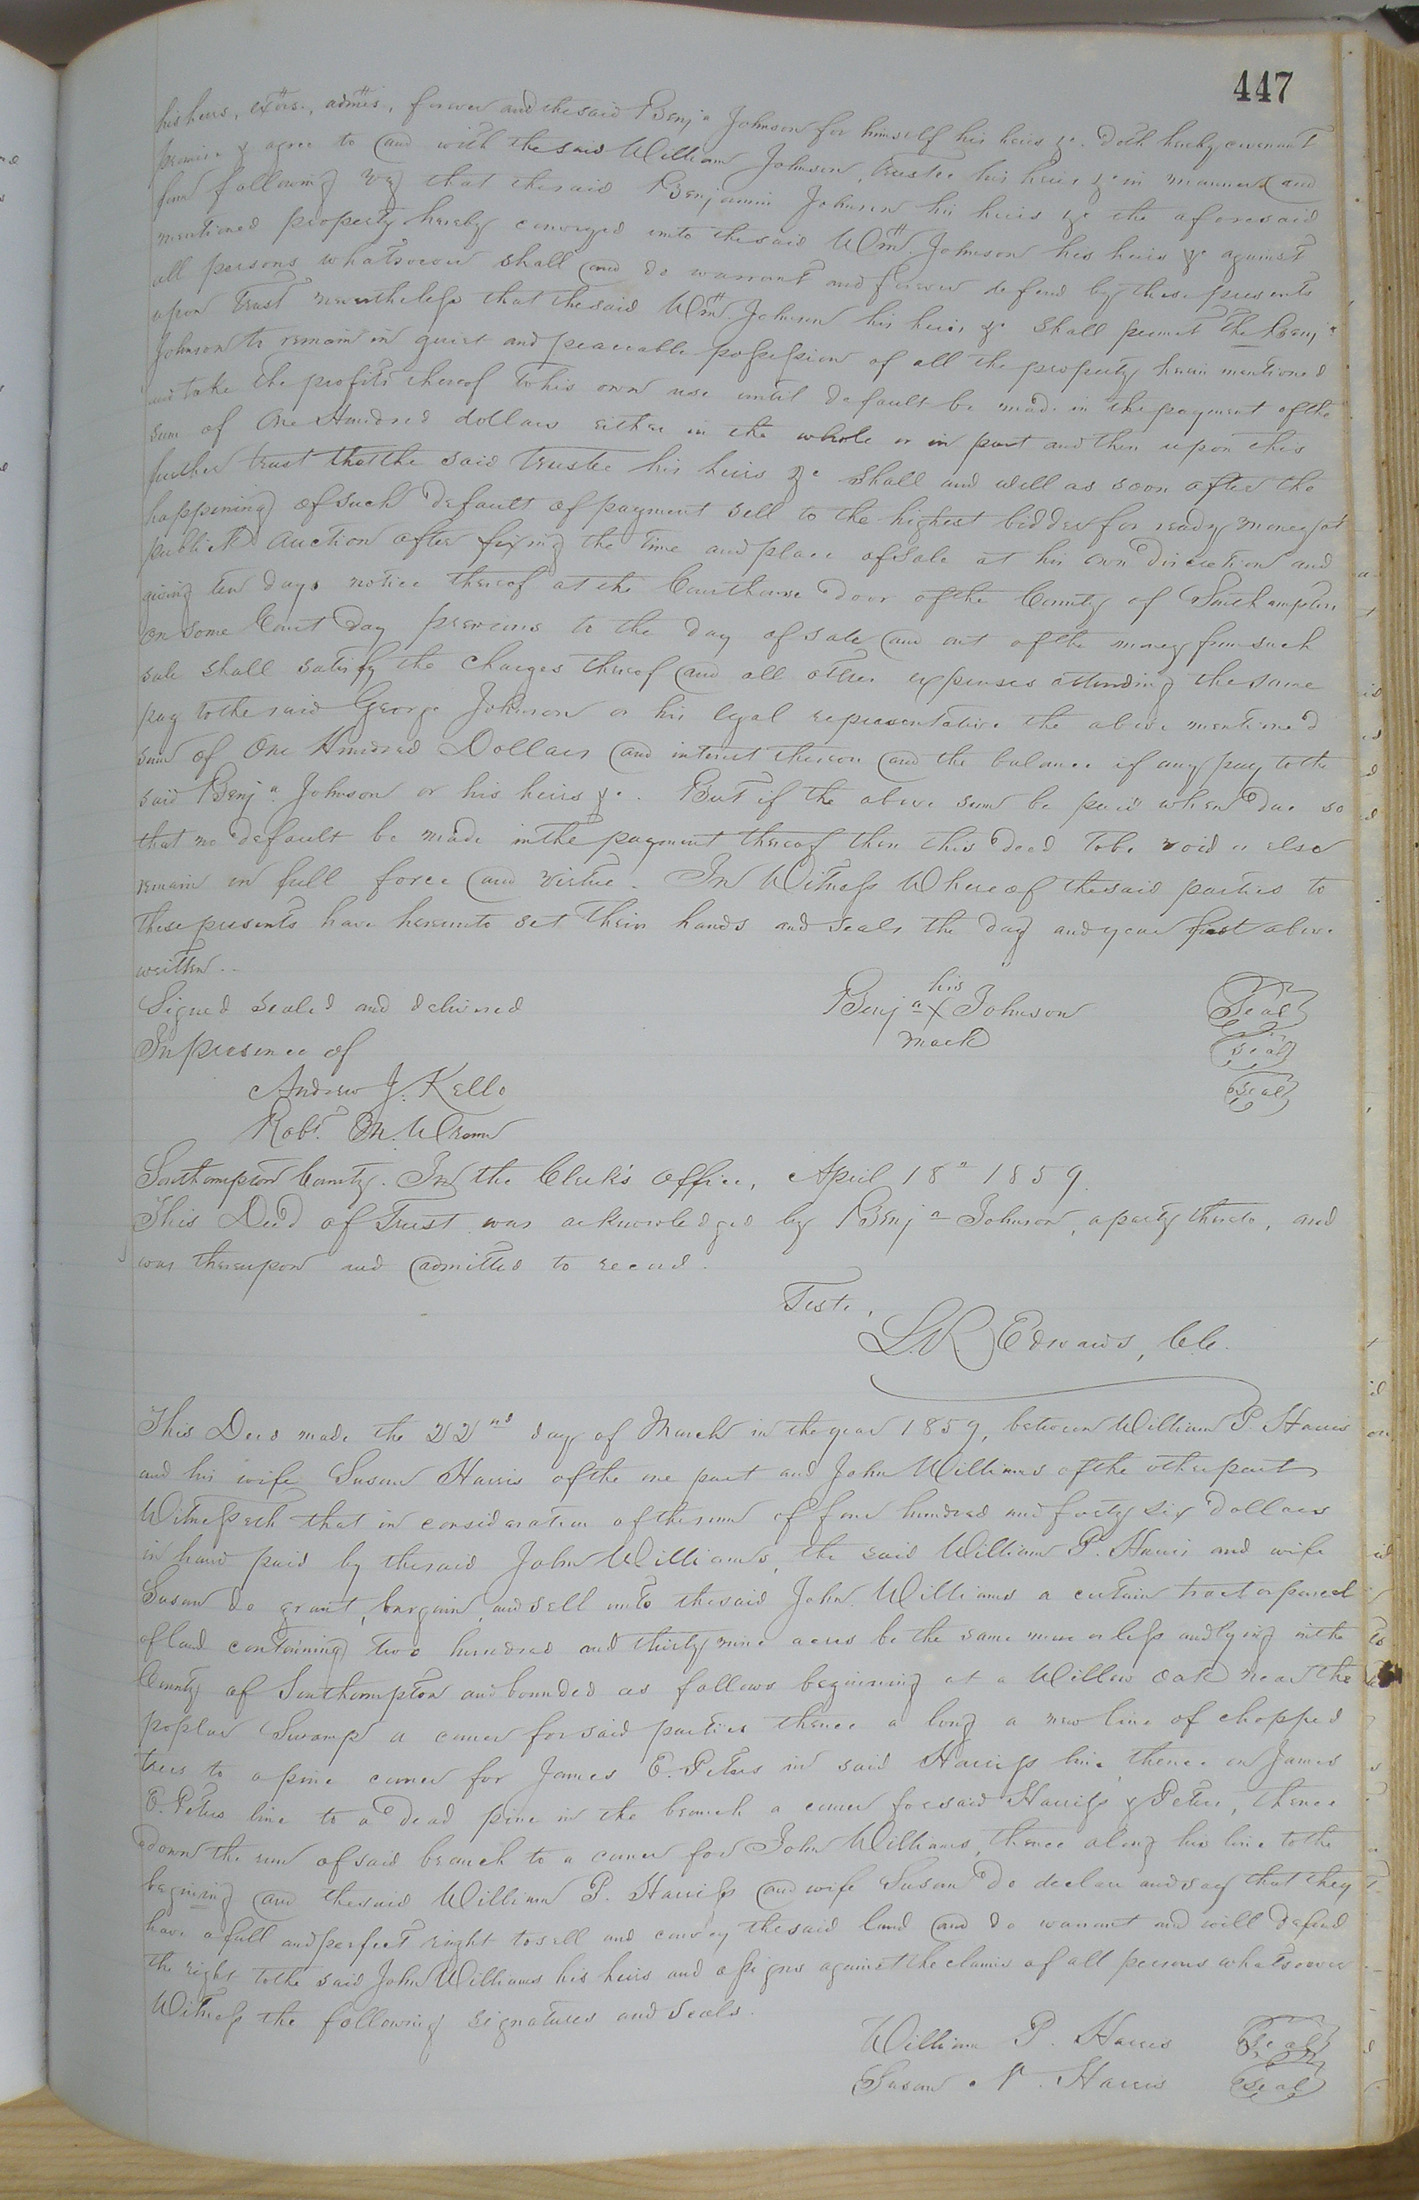 447
his heirs, exors., admrs., forever and the said Benja Johnson for himself his heirs &c. doth hereby covenant
promise & agree to and with the said William Johnson, Trustee his heirs &c in manner and
form following viz that the said Benjamin Johnson his heirs &c the aforesaid
mentioned property hereby conveyed unto the said Wm. Johnson his heirs &c against
all persons whatsoever shall and do warrant and forever defend by these presents
upon Trust nevertheless that the said Wm. Johnson his heirs &c shall permit the Benja
Johnson to remain in quiet and peaceable possession of all the property herein mentioned
and take the profits thereof to his own use until default be made in the payment of the
sum of One Hundred dollars either in the whole or in part and then upon this
further trust that the said trustee his heirs &c shall and will as soon after the
happening of such default of payment sell to the highest bidder for ready money at
public auction after fixing the time and place of sale at his own discretion and
giving ten days notice thereof at the Courthouse door of the County of Southampton
on some Court day previous to the day of sale and out of the money from such
sale shall satisfy the charges thereof and all other expenses attending the same
pay to the said George Johnson or his legal representative the above mentioned
sum of One Hundred Dollars and interest thereon and the balance if any pay to the
said Benja. Johnson or his heirs &c. But if the above sum be paid when due so
that no default be made in the payment thereof then this deed to be void or else
remain in full force and virtue. In Witness Whereof the said parties to
these presents have hereunto set their hands and seals the day and year first above
written..
Signed sealed and delivered
In presence of
Andrew J. Kello
Robt. M. Wrenn
his
Benja X Johnson Seal
mark Seal
Seal
Southampton County. In the Clerk's Office, April 18" 1859.
This Deed of Trust was acknowledged by Benja Johnson, a party thereto, and
was thereupon and admitted to record.
Teste,
L.R. Edwards, C.C.
This Deed made the 22nd day of March in the year 1859, between William P. Harris
and his wife Susan Harris of the one part and John Williams of the other part
Witnesseth that in consideration of the sum of four hundred and forty six dollars
in hand paid by the said John Williams, the said William P. Harris and wife
Susan do grant, bargain, and sell unto the said John Williams a certain tract or parcel
of land containing two hundred and thirty nine acres be the same more or less and lying in the
County of Southampton and bounded as follows begining at a Willow oak near the
poplar Swamp a corner for said parties thence a long a new line of chopped
trees to a pine corner for James E. Peters in said Harriss line, thence on James
E. Peters line to a dead pine in the branch a corner for said Harriss & Peters, thence
down the run of said branch to a corner for John Williams, thence along his line to the
begining and the said William P. Harriss and wife Susan do declare and say that they
have a full and perfect right to sell and convey the said land and do warrant and will defend
the right to the said John Williams his heirs and assigns against the claims of all persons whatsoever
Witness the following signatures and seals.
William P. Harris Seal
Susan N. Harris Seal